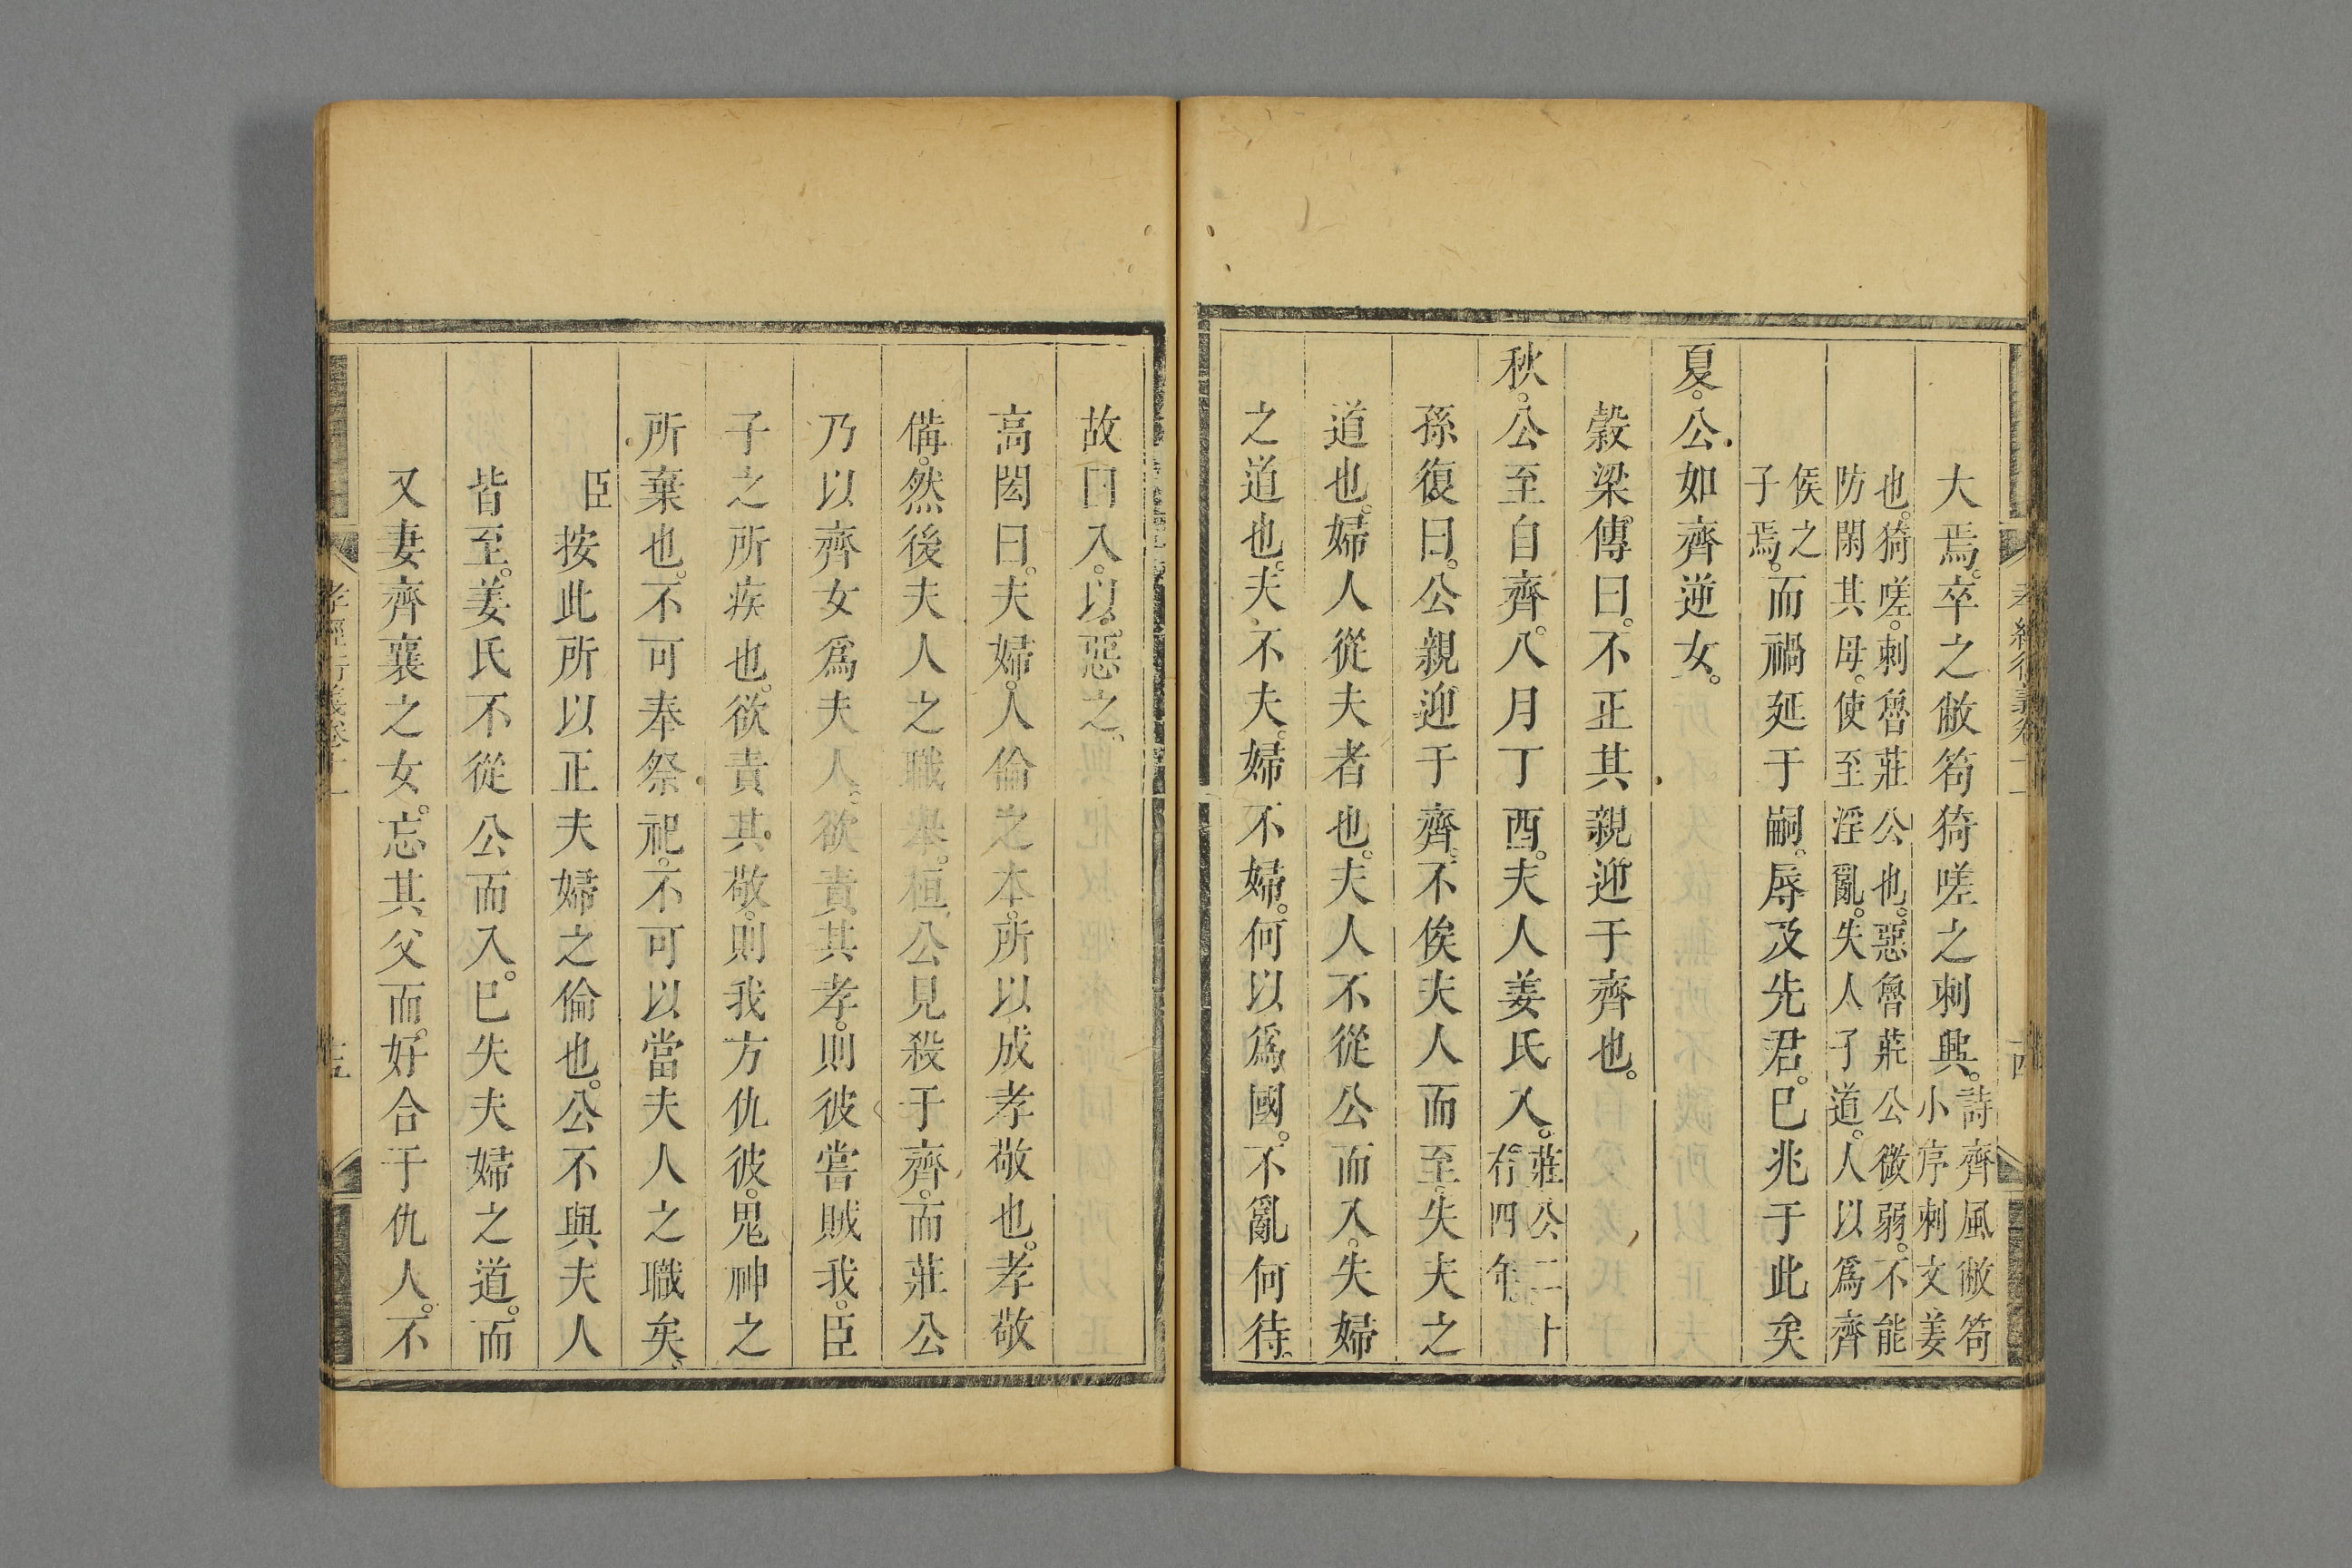 大焉。卒之敝笱猗嗟之刺興。詩齊風敝笱小序刺文姜
也。猗嗟。刺魯莊公也。惡魯莊公微弱。不能防閑其母。使至淫亂。失人子道。人以爲齊
侯之子焉。而禍延于嗣。辱及先君。已兆于此矣
夏。公如齊逆女。
穀梁傳曰。不正其親迎于齊也。
秋。公至自齊。八月丁酉。夫人姜氏入。莊公二十有四年。
孫復曰。公親迎于齊。不俟夫人而至。失夫之
道也。婦人從夫者也。夫人不從公而入。失婦
之道也。夫不夫。婦不婦。何以爲國。不亂何待。
孝經衍義卷十一
十四
故曰入。以惡之。
高閌曰。夫婦。人倫之本。所以成孝敬也。孝敬
備。然後夫人之職舉。桓公見殺于齊。而莊公
乃以齊女爲夫人。欲責其孝。則彼嘗賊我。臣
子之所疾也。欲責其敬。則我方仇彼。鬼神之
所棄也。不可奉祭祀。不可以當夫人之職矣。
臣按此所以正夫婦之倫也。公不與夫人
皆至。姜氏不從公而入。已失夫婦之道。而
又妻齊襄之女。忘其父而好合于仇人。不
孝經衍義卷十一
十五